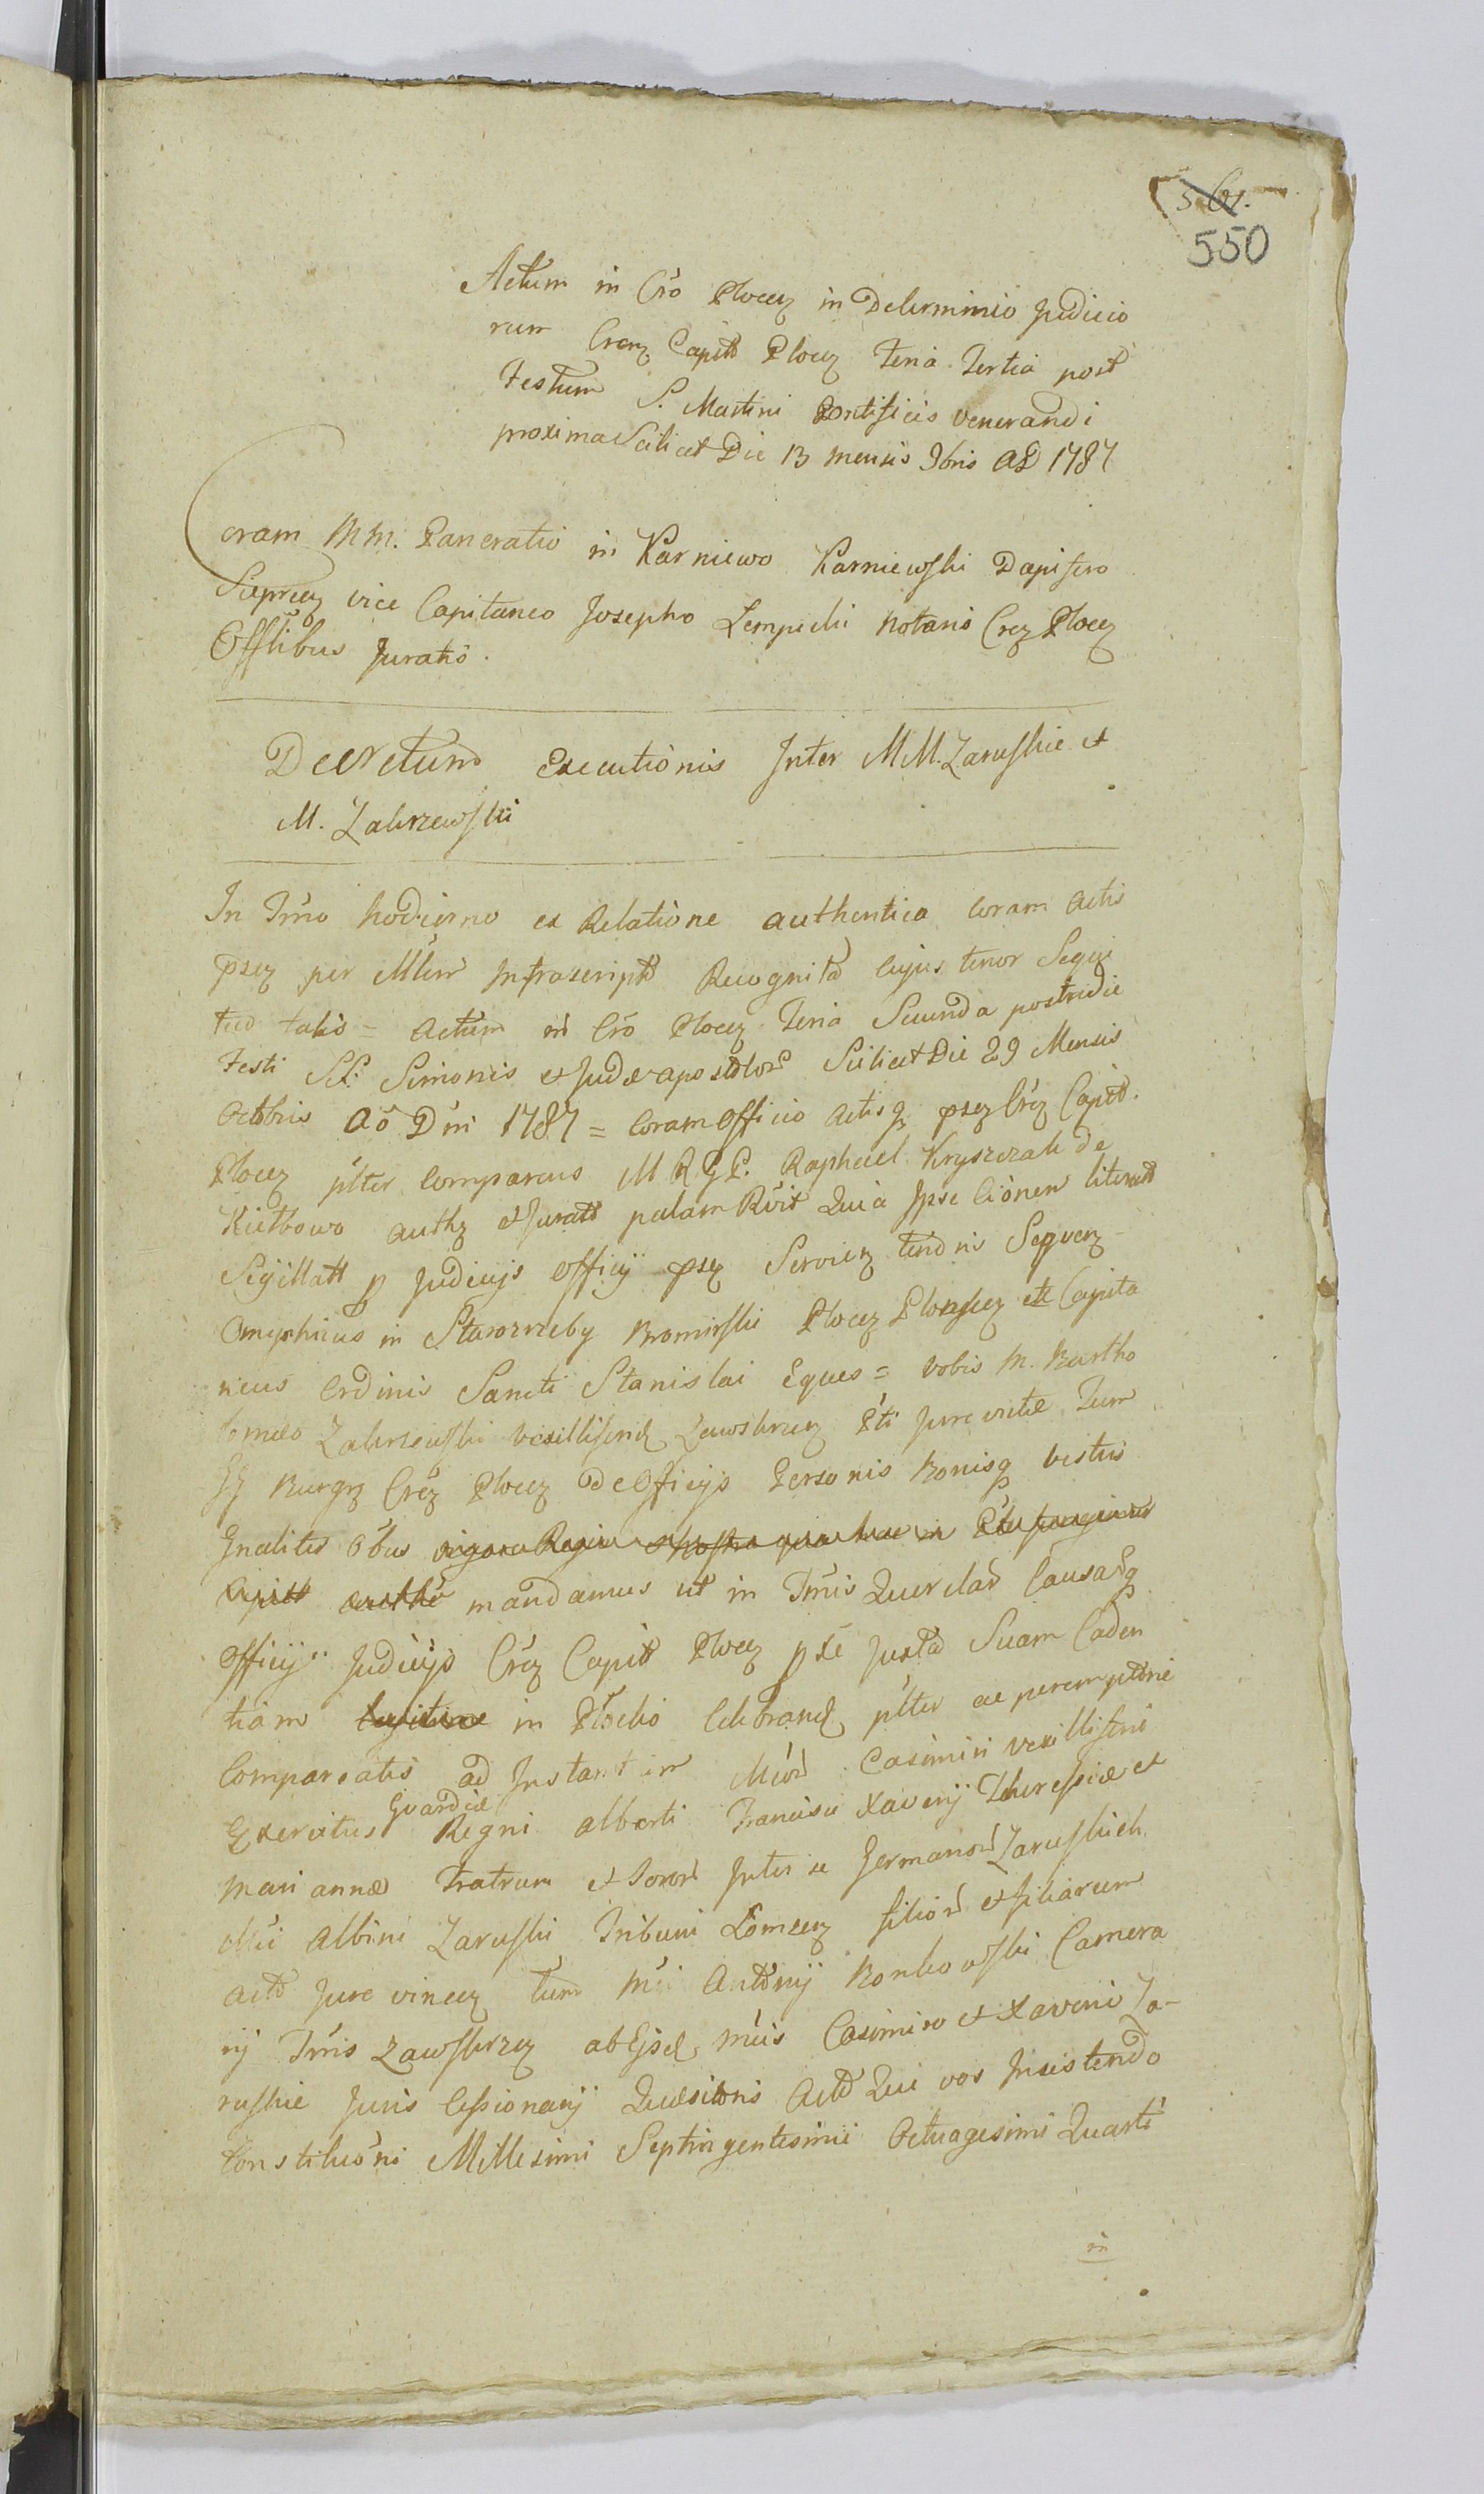 550
Actum in Crō Plocen in Determinio Judicio
rum Cren Capitt Plocen Feria Tertia post
Festum S. Martini Pontificis venerandi
proxima Scilicet Die 13 mensis 9bris AD 1787
Coram MM. Pancratio in Karniewo Karniewski Dapifero
Sieprcen vice Capitaneo Josepho Lempicki Notario Cren Plocen
Offlibus Juratis.
Decretum Executionis Inter MM. Zaruskie et
M. Zakrzewski
In Trno hodierno ex Relatione authentica coram Actis
psen per Mlem Infrascriptt Recognita cujus tenor Sequi
tur talis = Actum in Crō Plocen Feria Secunda postridie
Festi SS. Simonis et Judæ apostolor Scilicet Die 29 Mensis
Octobris Aō Dni 1787 = Coram Officio Actisq psen Cren Capitt.
Plocen plter Comparens M R G P. Raphael Kryszczak de
Kiełbowo auth et Juratt palam Rvit Quia Ipse Cionem literatt
Sigillatt p Judicijs Officij psen Servien tenoris Sequen
Onuphrius in Starozrzeby Bromirski Plocen Plonscen etc Capita
neus Ordinis Sancti Stanislai Eques = vobis M. Bartho
lomæo Zakrzewski vexillifero Zawskrzen Pti Jurevictæ Tum
Gg Burgr Cren Plocen de Officijs Personis Bonisq vestris
Gnaliter Obus mandamus ut in Trnis Querelar Causarq
Officij Judicijs Cren Capitt Plocen p se Juxta Suam Caden
tiam in Plocko Celebrand plter ac peremptorie
Compareatis ad Instantiam Mcor Casimiri vexilliferi
Guardiæ
Exercitus Regni Alberti Francisci Xaverij Theressiæ et
Mariannæ Fratrum et Soror Inter se Germanor Zaruskich
Mci Albini Zaruski Tribuni Łomzen filior et filiarum
Acto Jure vincen tum Mci Antonij Bonkowski Camera
rij Trris Zawskrzen ab Eisd Mcis Casimiro et Xaverio Za-
ruskie Juris Cessionarij Quæsitoris Acto Qui vos Insistendo
Constitutioni Millesimi Septingentesimi Octuagesimi Quarti
in